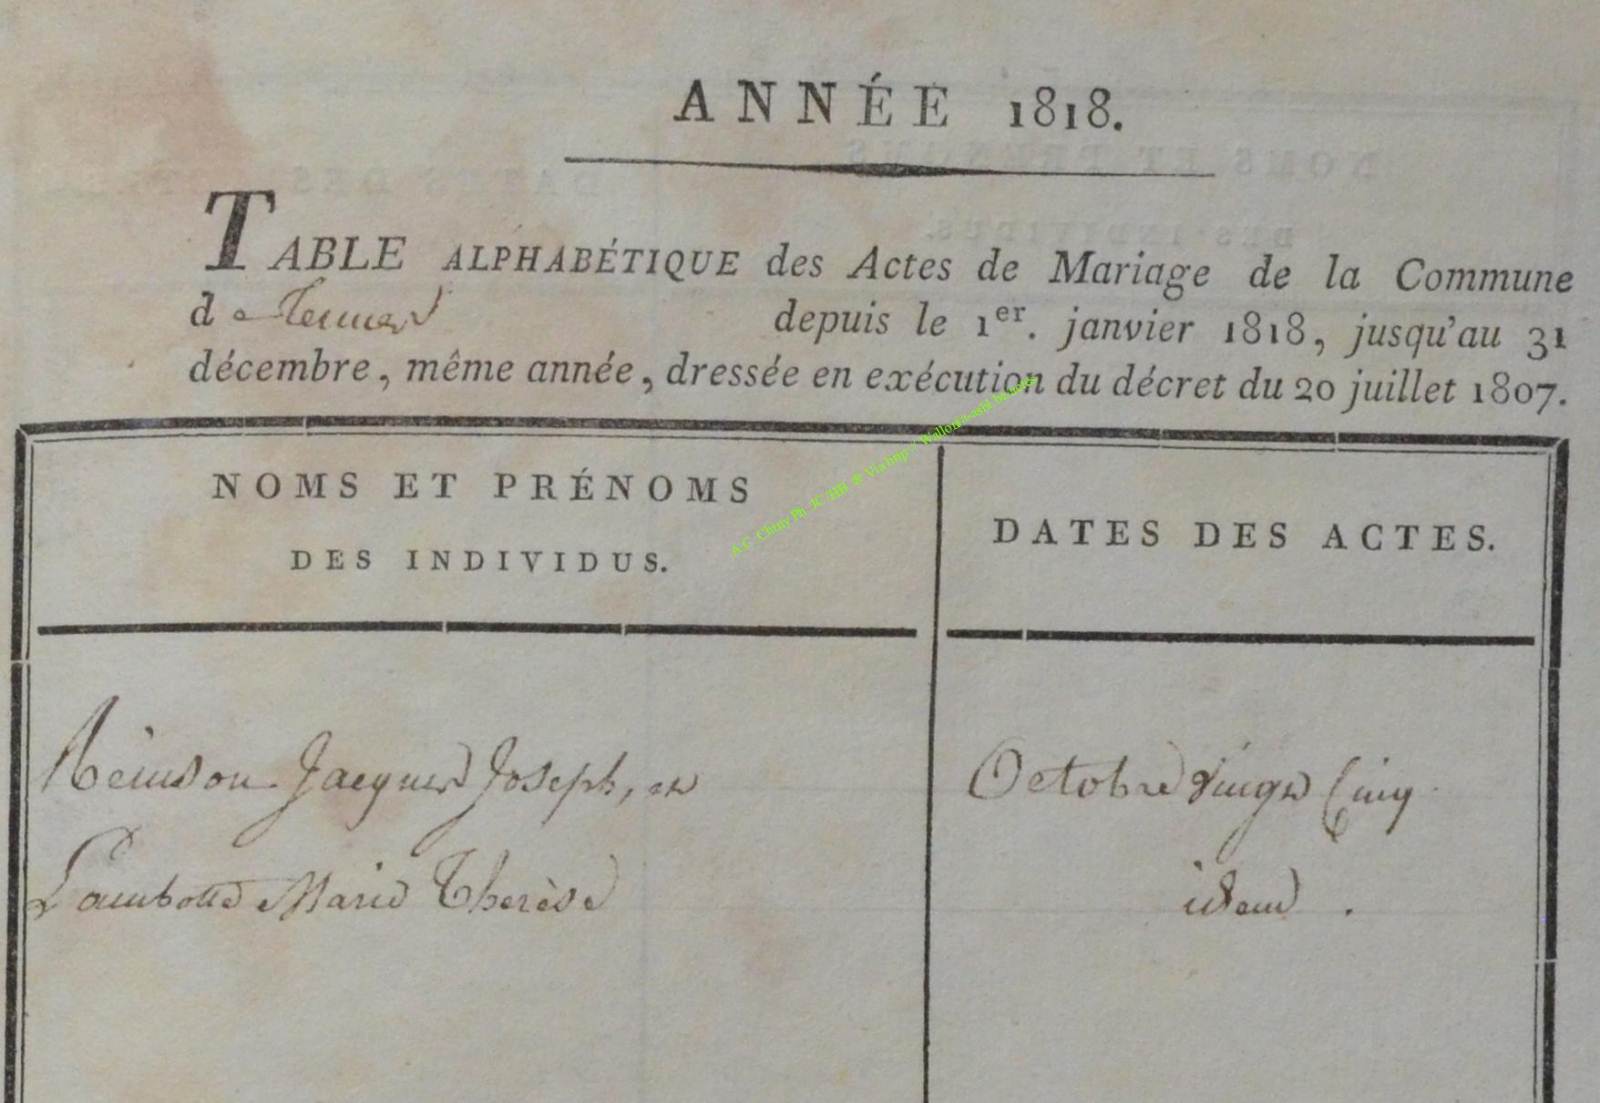 ANNÉE 1818.
TABLE ALPHABÉTIQUE des Actes de Mariage de la Commune
de Termes depuis le 1er. janvier 1818, jusqu'au 31
décembre, même année, dressée en exécution du décret du 20 juillet 1807.
NOMS ET PRÉNOMS
DES INDIVIDUS.
DATES DES ACTES.
Jacques Joseph, et
Octobre vingt Cinq
Lambotte Marie Therèse
idem .
A.C. Chiny Ph JC HH @ Via http